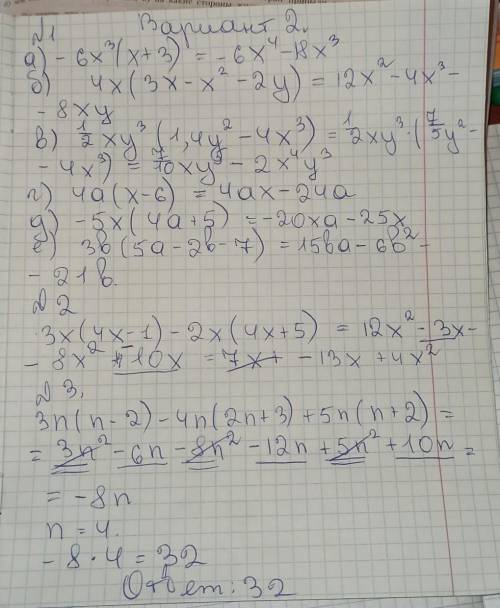 №1 Вариант 2.
а) -6x³(x+3) = -6x⁴-18x³
б) 4x(3x-x²-2y) = 12x²-4x³-
-8xy
в) 1/2 xy³(1,4y²-4x³) = 1/2 xy³·(7/5 y²-
-4x³) = 7/10 xy⁵ - 2x⁴y³
г) 4a(x-6) = 4ax-24a
д) -5x(4a+5) = -20xa-25x
е) 3b(5a-2b-7) = 15ba-6b²-
-21b.
№2
3x(4x-1)-2x(4x+5) = 12x²-3x-
-8x² 10x = 7x+ -13x+4x²
№3.
3n(n-2)-4n(2n+3)+5n(n+2) =
= 3n²-6n-8n²-12n+5n²+10n =
= -8n
n = 4.
-8·4 = 32
Ответ: 32